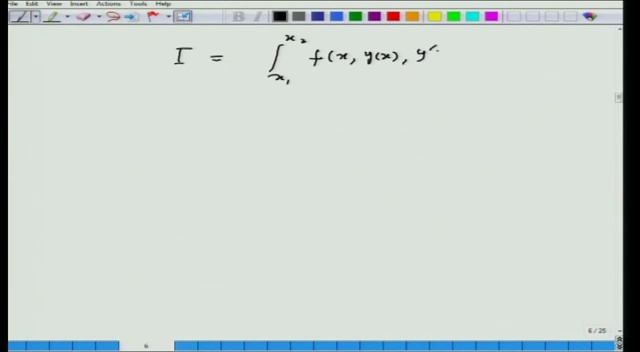 File Edit View Insert Actions Tools Help
B I
x₂
I = ∫ f(x, y(x), y'
x₁
6 / 25
6